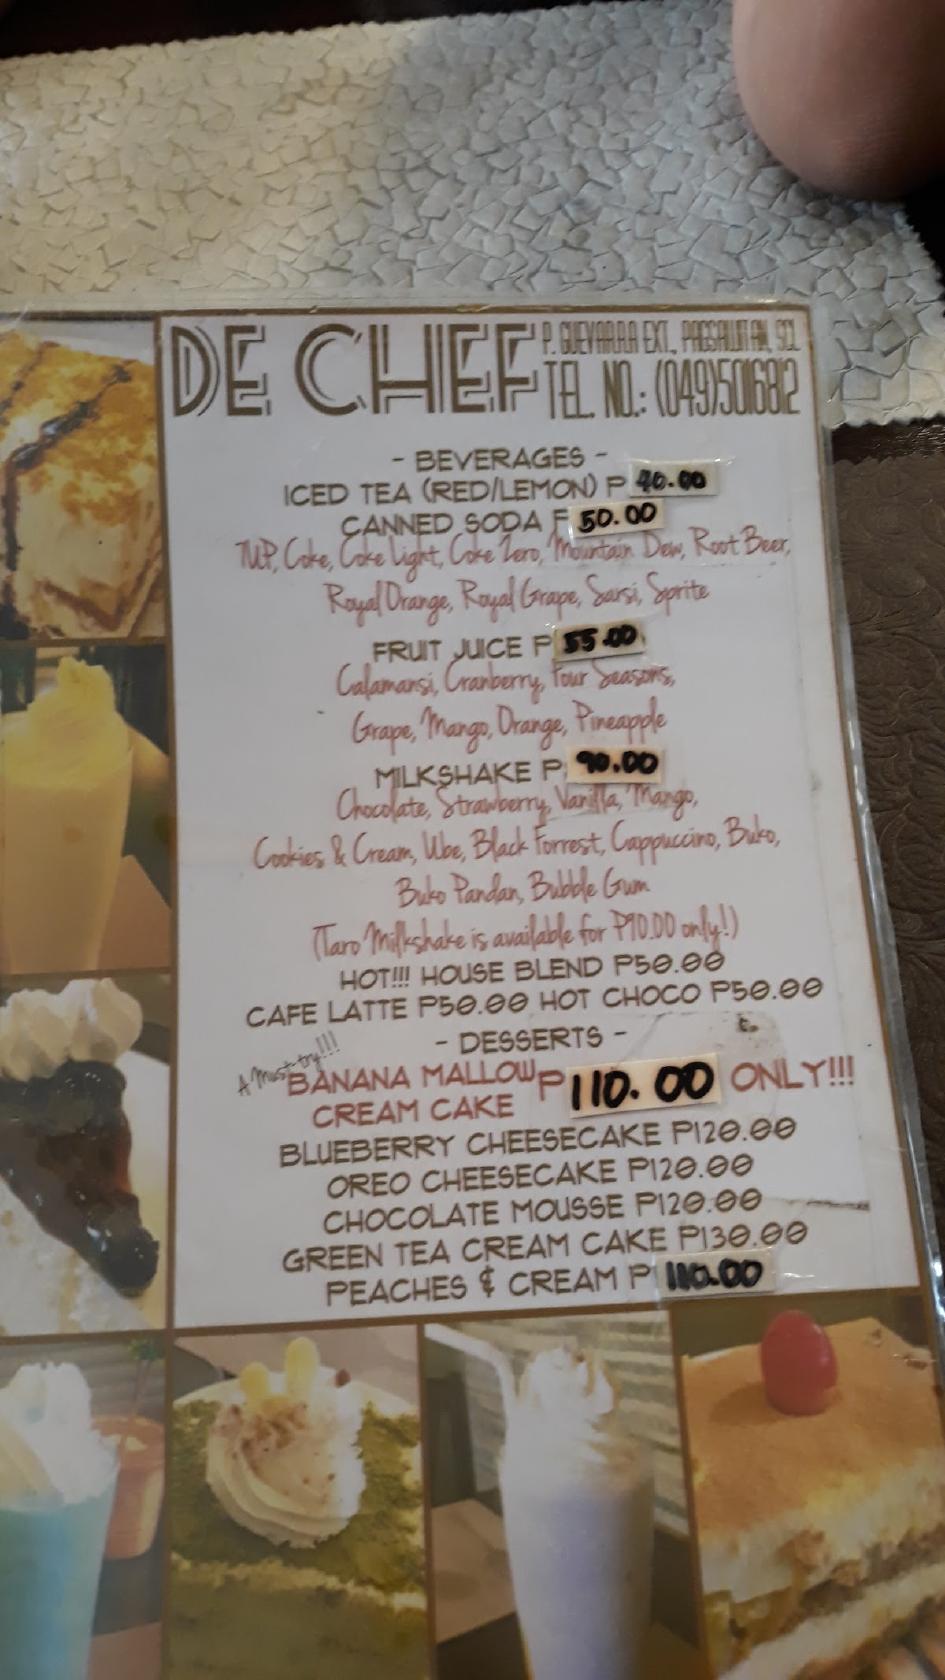 DE CHEF
P. GUEVARRA EXT., PAGSAWITAN, SCL
TEL. NO.: (049)5016812
- BEVERAGES -
ICED TEA (RED/LEMON) P 40.00
CANNED SODA P 50.00
7UP, Coke, Coke Light, Coke Zero, Mountain Dew, Root Beer,
Royal Orange, Royal Grape, Sarsi, Sprite
FRUIT JUICE P 55.00
Calamansi, Cranberry, Four Seasons,
Grape, Mango, Orange, Pineapple
MILKSHAKE P 90.00
Chocolate, Strawberry, Vanilla, Mango,
Cookies & Cream, Ube, Black Forrest, Cappuccino, Buko,
Buko Pandan, Bubble Gum
(Taro Milkshake is available for P90.00 only!)
HOT!!! HOUSE BLEND P50.00
CAFE LATTE P50.00 HOT CHOCO P50.00
- DESSERTS -
A Must try!!!
BANANA MALLOW P110.00 ONLY!!!
CREAM CAKE
BLUEBERRY CHEESECAKE P120.00
OREO CHEESECAKE P120.00
CHOCOLATE MOUSSE P120.00
GREEN TEA CREAM CAKE P130.00
PEACHES & CREAM P 110.00